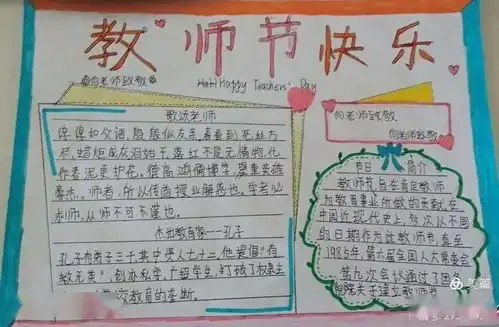 教师节快乐
向老师致敬
Hah! Happy Teachers' Day
歌颂老师
谆谆如父语,殷殷似友亲,春蚕到死丝方
尽,蜡炬成灰泪始干,落红不是无情物,化
作春泥更护花。德高鸿儒博学,望重英雄
豪杰。师者,所以传道授业解惑也。学者必
求师,从师不可不谨也。
杰出教育家——孔子
孔子有弟子三千其中贤人七十二,他提倡"有
教无类",创办私学,广招学生,打破了
教育的垄断。
向老师致敬
向老师致敬
节日 简介
教师节,旨在肯定教师
为教育事业所做的贡献,在
中国近现代史上,多次以不同
的日期作为过教师节,直至
1985年,第六届全国人大常委会
第九次会议通过了国
院关于建立教师节
美篇